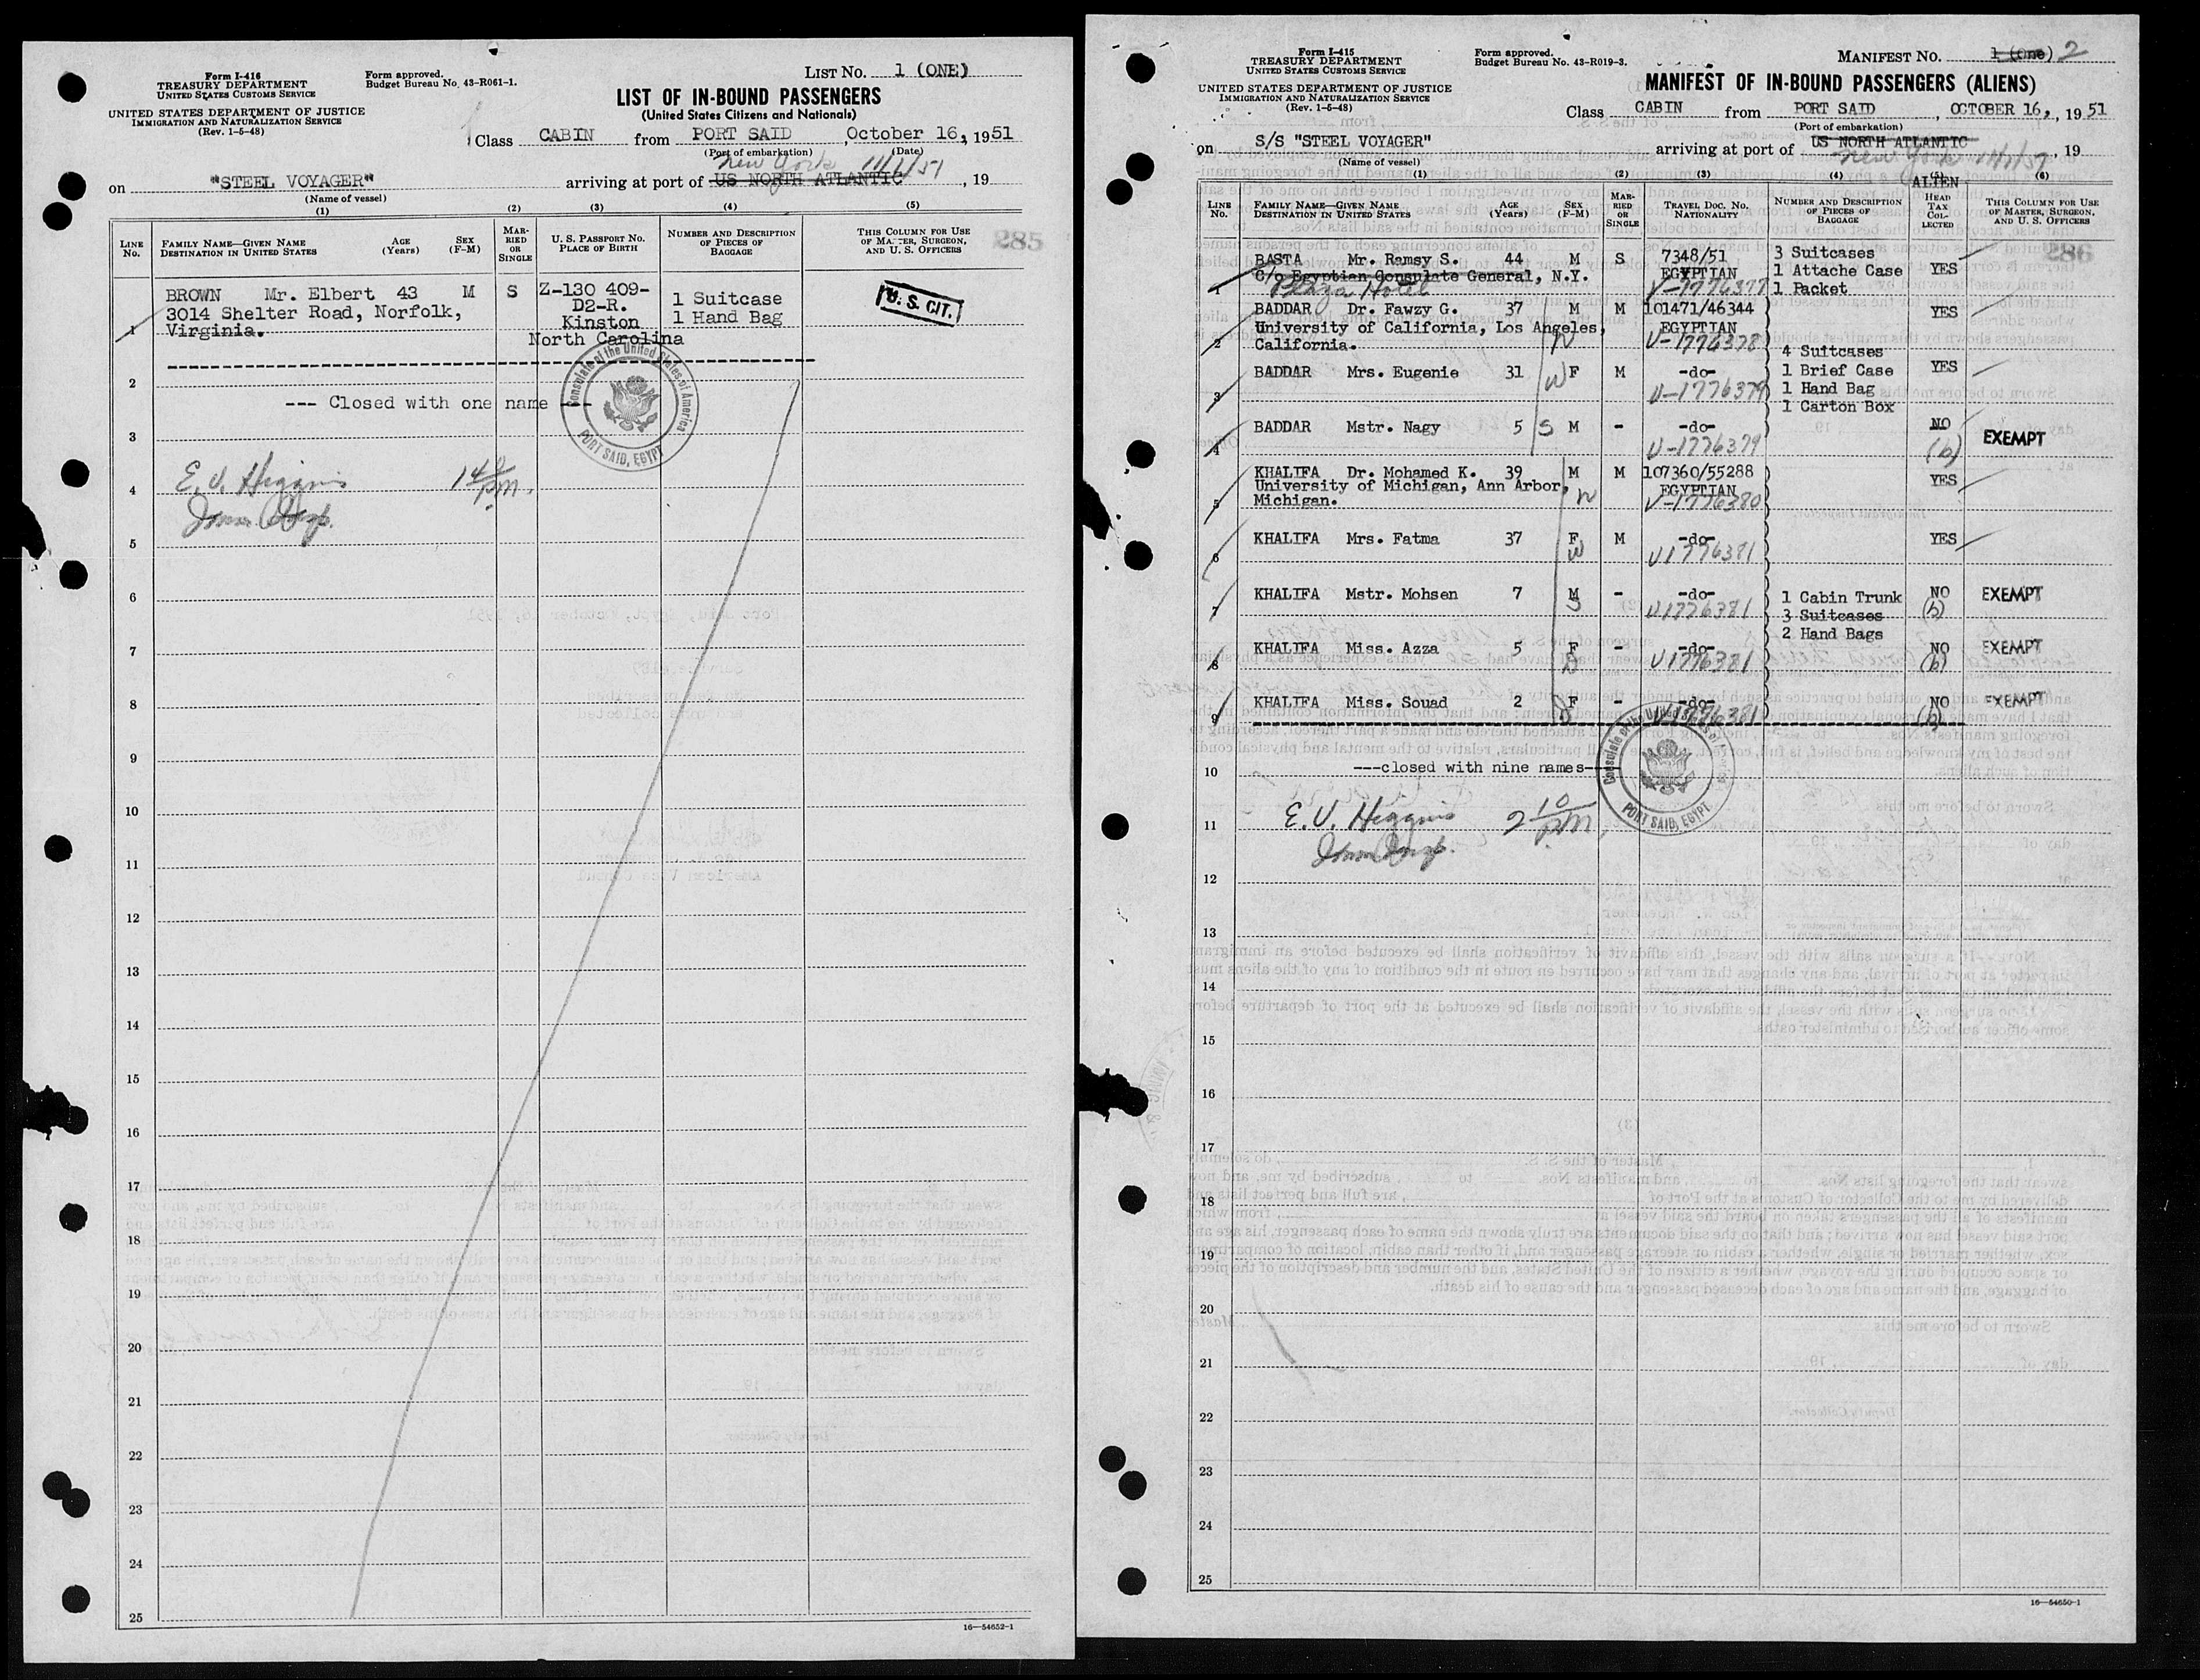 Form I-416
TREASURY DEPARTMENT
UNITED STATES CUSTOMS SERVICE
UNITED STATES DEPARTMENT OF JUSTICE
IMMIGRATION AND NATURALIZATION SERVICE
(Rev. 1-5-48)
Form approved.
Budget Bureau No. 43-R061-1.
LIST NO. 1 (ONE)
LIST OF IN-BOUND PASSENGERS
(United States Citizens and Nationals)
Class CABIN from PORT SAID, October 16, 1951
(Port of embarkation) (Date)
New York 11/1/51
on "STEEL VOYAGER" arriving at port of US NORTH ATLANTIC, 19
(Name of vessel)
(1) (2) (3) (4) (5)
LINE No. FAMILY NAME—GIVEN NAME DESTINATION IN UNITED STATES AGE (Years) SEX (F-M) MARRIED OR SINGLE U. S. PASSPORT NO. PLACE OF BIRTH NUMBER AND DESCRIPTION OF PIECES OF BAGGAGE THIS COLUMN FOR USE OF MASTER, SURGEON, AND U. S. OFFICERS
285
1 BROWN Mr. Elbert 43 M S Z-130 409-
3014 Shelter Road, Norfolk, D2-R. 1 Suitcase
Virginia. Kinston 1 Hand Bag
North Carolina
U. S. CIT.
2
--- Closed with one name ---
Consulate of the United States of America
PORT SAID, EGYPT
3
4 E. V. Higgins 1 40 PM.
Imm. Insp.
5
6
7
8
9
10
11
12
13
14
15
16
17
18
19
20
21
22
23
24
25
16—54652-1
Form I-415
TREASURY DEPARTMENT
UNITED STATES CUSTOMS SERVICE
UNITED STATES DEPARTMENT OF JUSTICE
IMMIGRATION AND NATURALIZATION SERVICE
(Rev. 1-5-48)
Form approved.
Budget Bureau No. 43-R019-3.
MANIFEST NO. 1 (One) 2
MANIFEST OF IN-BOUND PASSENGERS (ALIENS)
Class CABIN from PORT SAID, OCTOBER 16, 1951
(Port of embarkation)
on S/S "STEEL VOYAGER" arriving at port of US NORTH ATLANTIC, 19
New York 11/1/51
(Name of vessel)
(1) (2) (3) (4) (5) (6)
LINE No. FAMILY NAME—GIVEN NAME DESTINATION IN UNITED STATES AGE (Years) SEX (F-M) MARRIED OR SINGLE TRAVEL DOC. NO. NATIONALITY NUMBER AND DESCRIPTION OF PIECES OF BAGGAGE ALIEN HEAD TAX COLLECTED THIS COLUMN FOR USE OF MASTER, SURGEON, AND U. S. OFFICERS
286
1 BASTA Mr. Ramsy S. 44 M S 7348/51 3 Suitcases
C/o Egyptian Consulate General, N.Y. EGYPTIAN 1 Attache Case YES
Plaza Hotel V-1776377 1 Packet
2 BADDAR Dr. Fawzy G. 37 M M 101471/46344 YES
University of California, Los Angeles, EGYPTIAN
California. W V-1776378
4 Suitcases
3 BADDAR Mrs. Eugenie 31 W F M -do- 1 Brief Case YES
V-1776379 1 Hand Bag
1 Carton Box
4 BADDAR Mstr. Nagy 5 S M - -do- NO EXEMPT
V-1776379 (b)
5 KHALIFA Dr. Mohamed K. 39 M M 107360/55288 YES
University of Michigan, Ann Arbor, EGYPTIAN
Michigan. W V-1776380
6 KHALIFA Mrs. Fatma 37 F M -do- YES
W V1776381
7 KHALIFA Mstr. Mohsen 7 M - -do- 1 Cabin Trunk NO EXEMPT
S V1776381 3 Suitcases (b)
2 Hand Bags
8 KHALIFA Miss. Azza 5 F - -do- NO EXEMPT
D V1776381 (b)
9 KHALIFA Miss. Souad 2 F - -do- NO EXEMPT
D V1776381 (b)
10 ---closed with nine names---
Consulate of the United States of
PORT SAID, EGYPT
11 E. V. Higgins 2 10 PM.
Imm Insp.
12
13
14
15
16
17
18
19
20
21
22
23
24
25
16—54650-1